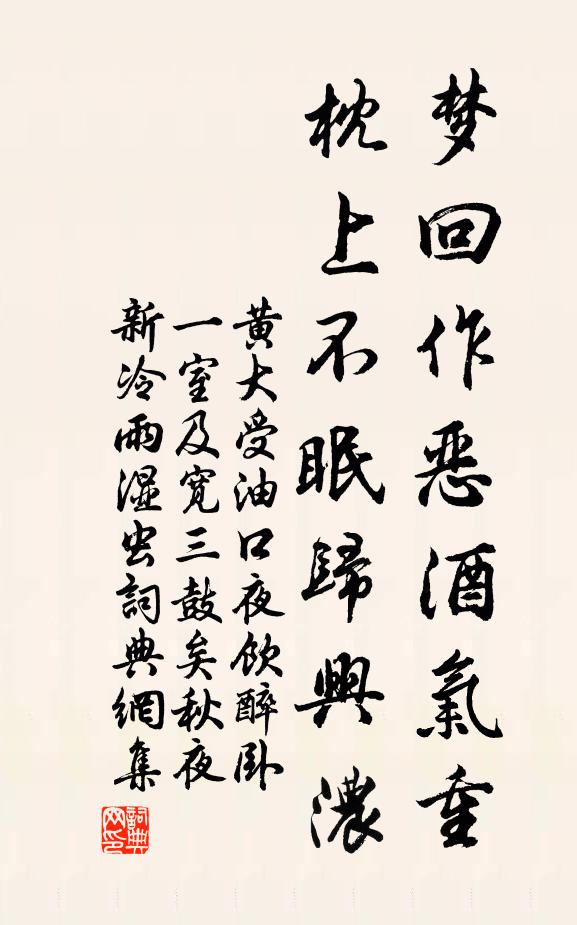 梦回作恶酒氣重
枕上不眠歸興濃
黄大受油口夜饮醉卧
一室及寛三鼓矣秋夜
新冷雨湿虫詞典網集
詞典
网印